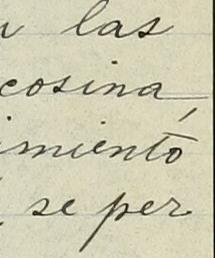 las
cosina,
imiento
se per